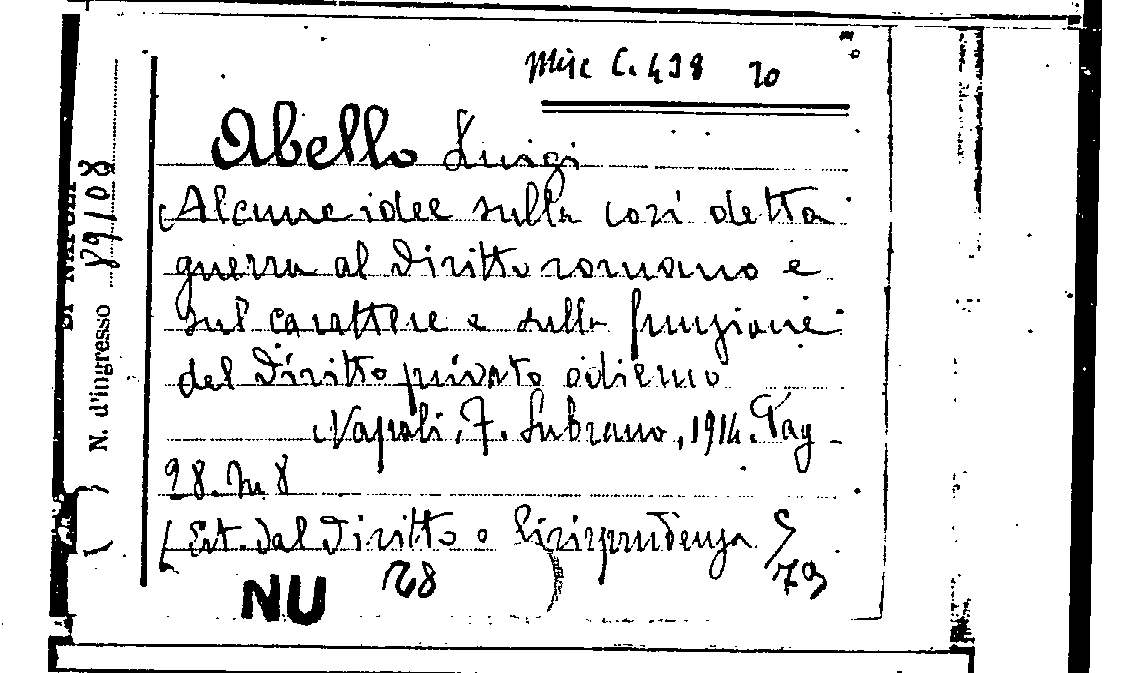 Misc C. 438 20
Abello Luigi
Alcune idee sulla così detta
guerra al diritto romano e
sul carattere e sulla funzione
del diritto privato odierno
Napoli, F. Lubrano, 1914. Pag
28. in 8
(Est. dal Diritto e Giurisprudenza
NU 28
N. d'ingresso 89108
DI NAPOLI